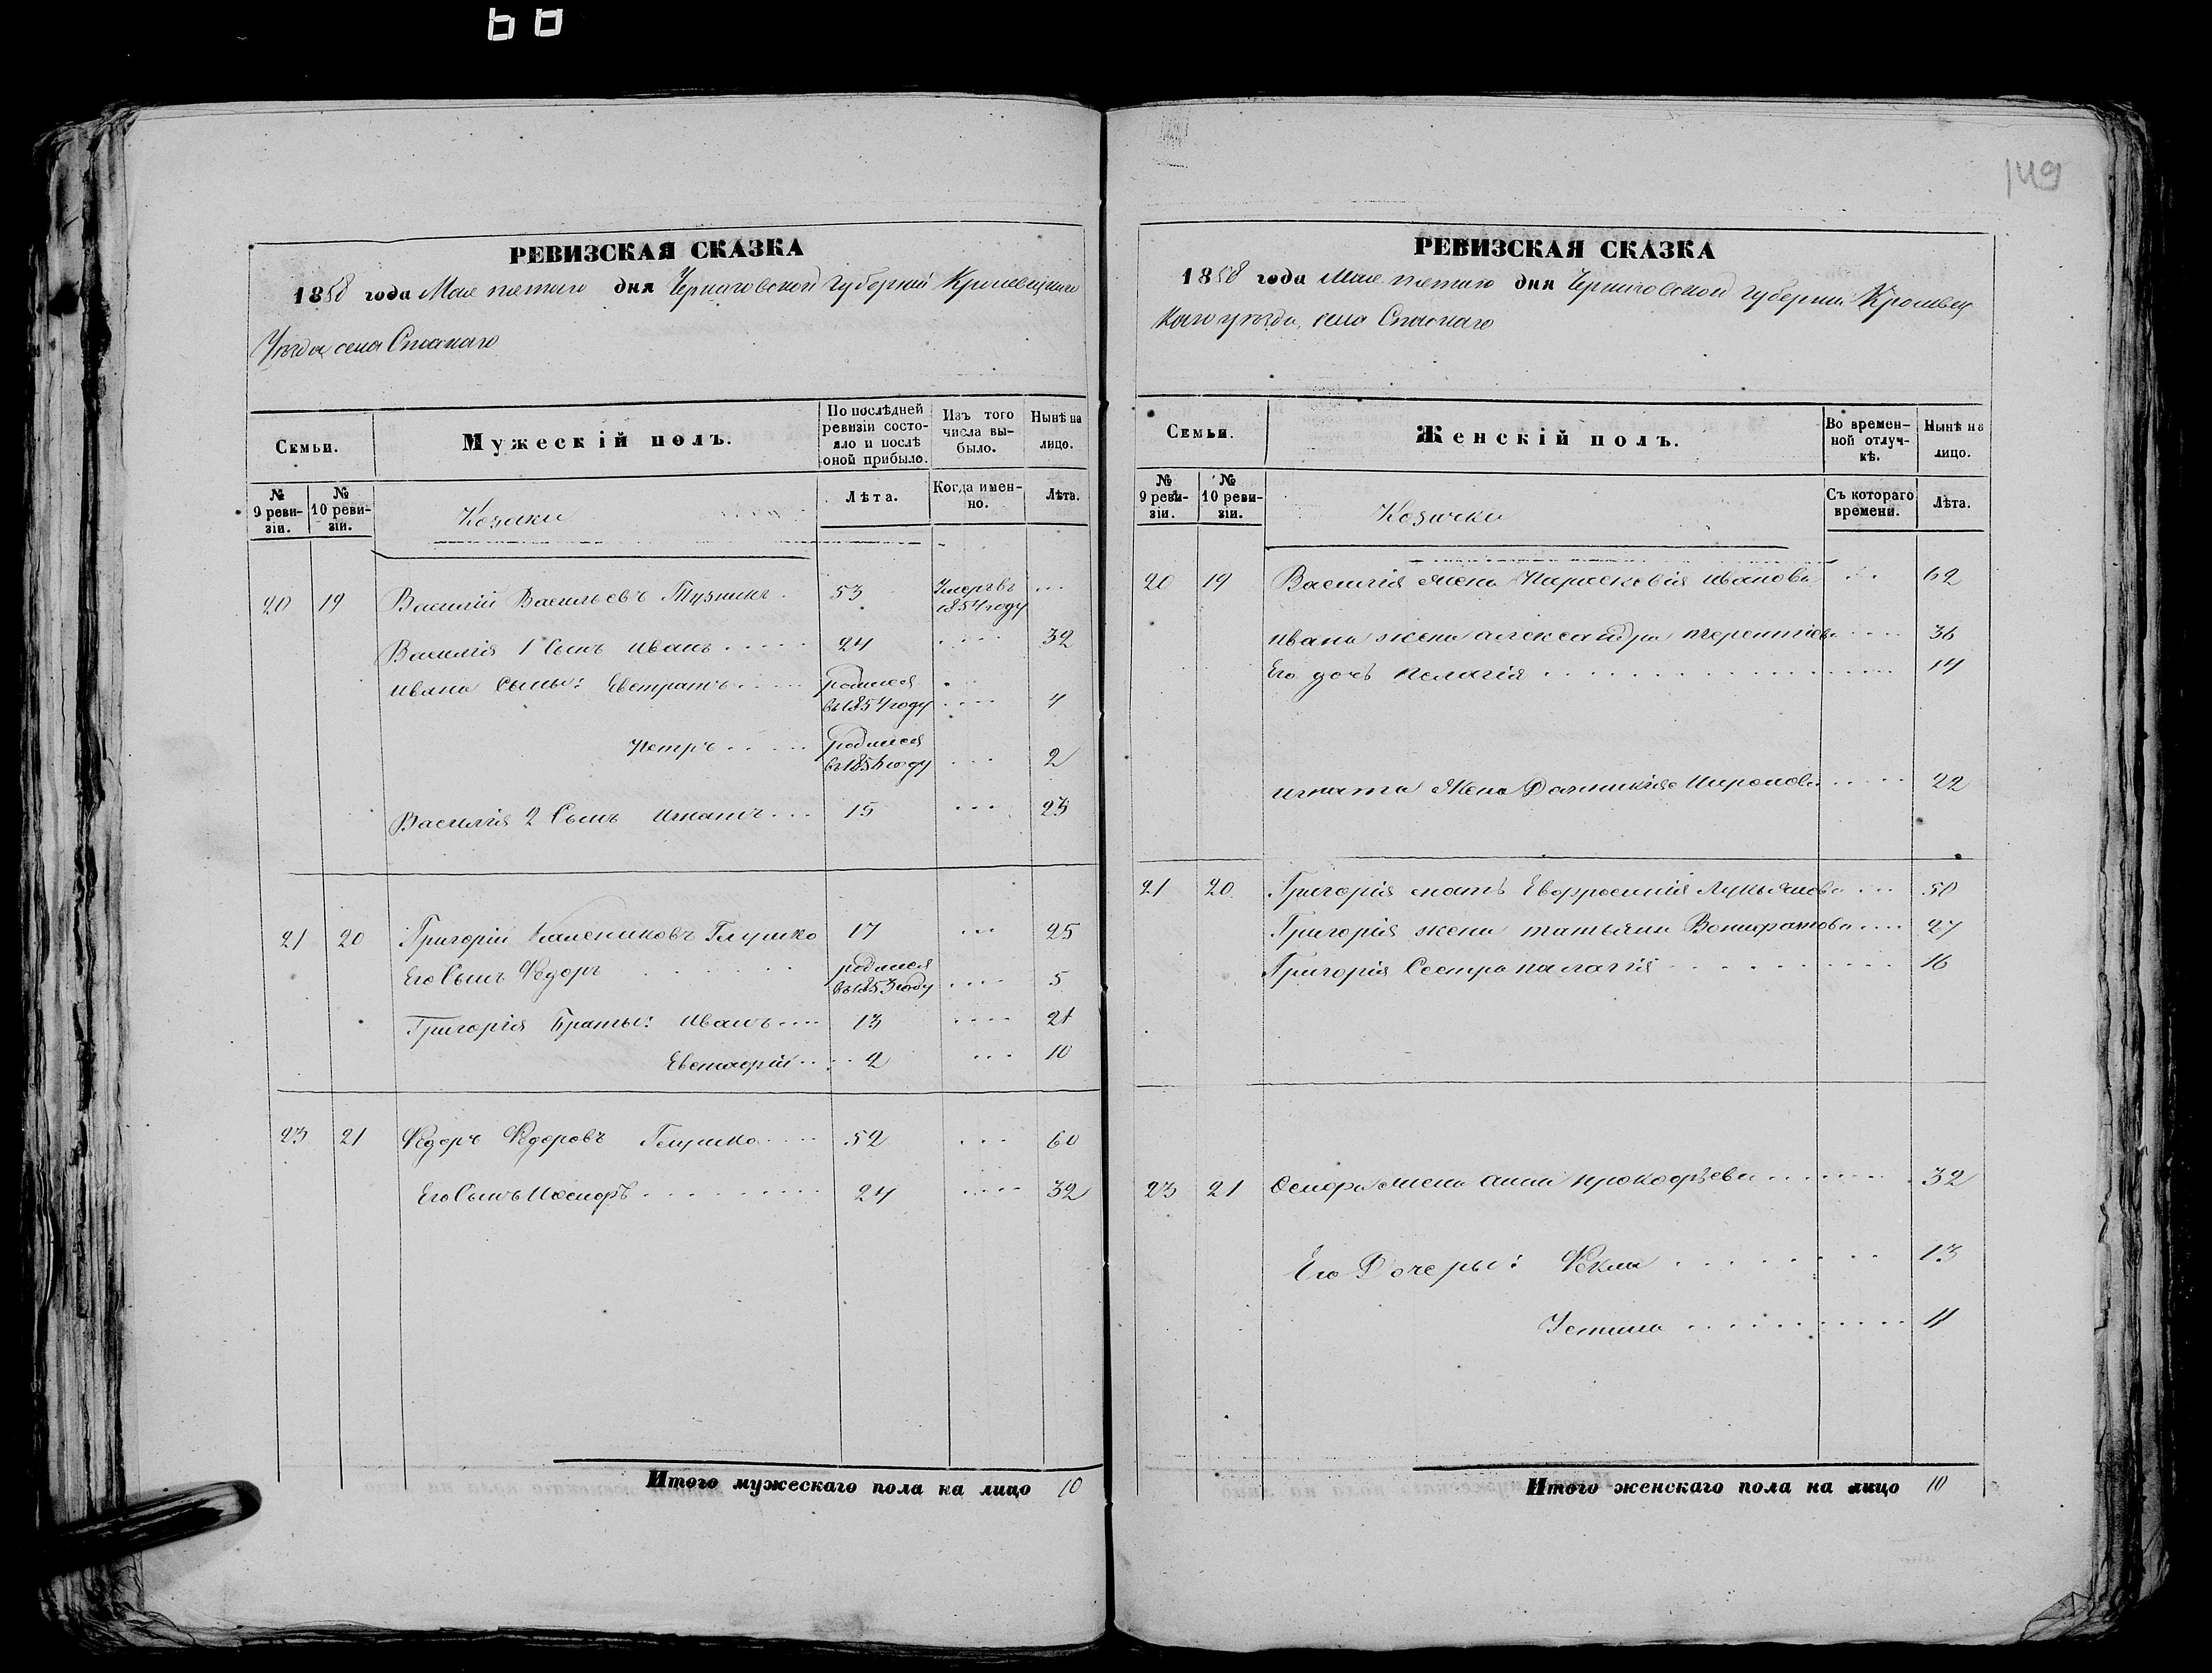 149
РЕВИЗСКАЯ СКАЗКА
1858 года Мая пятаго дня Черниговской Губерніи Кролевецкаго
Уѣзда села Спаскаго
Семьи.
Мужескій полъ.
По послѣдней ревизіи состояло и послѣ оной прибыло.
Изъ того числа выбыло.
Нынѣ на лицо.
№ 9 ревизіи.
№ 10 ревизіи.
Козаки
Лѣта.
Когда именно.
Лѣта.
20 19 Василій Васильевъ 53 Умеръ въ 1854 году
Василія 1 Сынъ Иванъ 24 32
Ивана Сыны: Евстратъ родился въ 1854 году 4
Петръ родился въ 1856 году 2
Василія 2 Сынъ Игнатъ 15 23
21 20 Григорій Калениковъ Глушко 17 25
Его Сынъ Ѳедоръ родился въ 1853 году 5
Григорія Братья: Иванъ 13 21
Евстафій 2 10
23 21 Ѳедоръ Ѳедоровъ Глушко 52 60
Его Сынъ Иосифъ 24 32
Итого мужескаго пола на лицо 10
РЕВИЗСКАЯ СКАЗКА
1858 года Мая пятаго дня Черниговской Губерніи Кролевец
каго уѣзда, села Спаскаго
Семьи.
Женскій полъ.
Во временной отлучкѣ.
Нынѣ на лицо.
№ 9 ревизіи.
№ 10 ревизіи.
Козачки
Съ котораго времени.
Лѣта.
20 19 Василія жена Параскевія Иванова 62
Ивана жена Александра Терентіева 36
Его дочь Пелагія 14
Игната Жена Домникія Миронова 22
21 20 Григорія мать Евфросинія Лукьянова 50
Григорія жена Татьяна Вонифатова 27
Григорія Сестра Палагія 16
23 21 Осифа жена Анна Прокофьева 32
Его Дочеры: Ѳекла 13
Устина 11
Итого женскаго пола на лицо 10